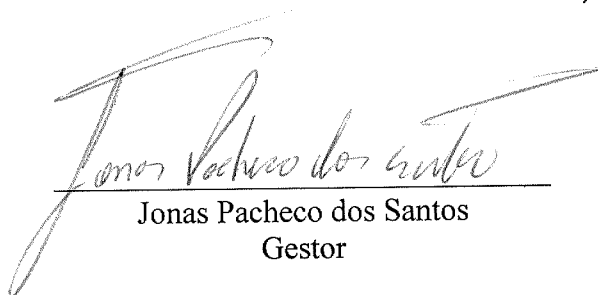 Jonas Pacheco dos Santos
Jonas Pacheco dos Santos
Gestor